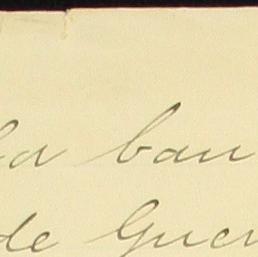 la ban
de Guer